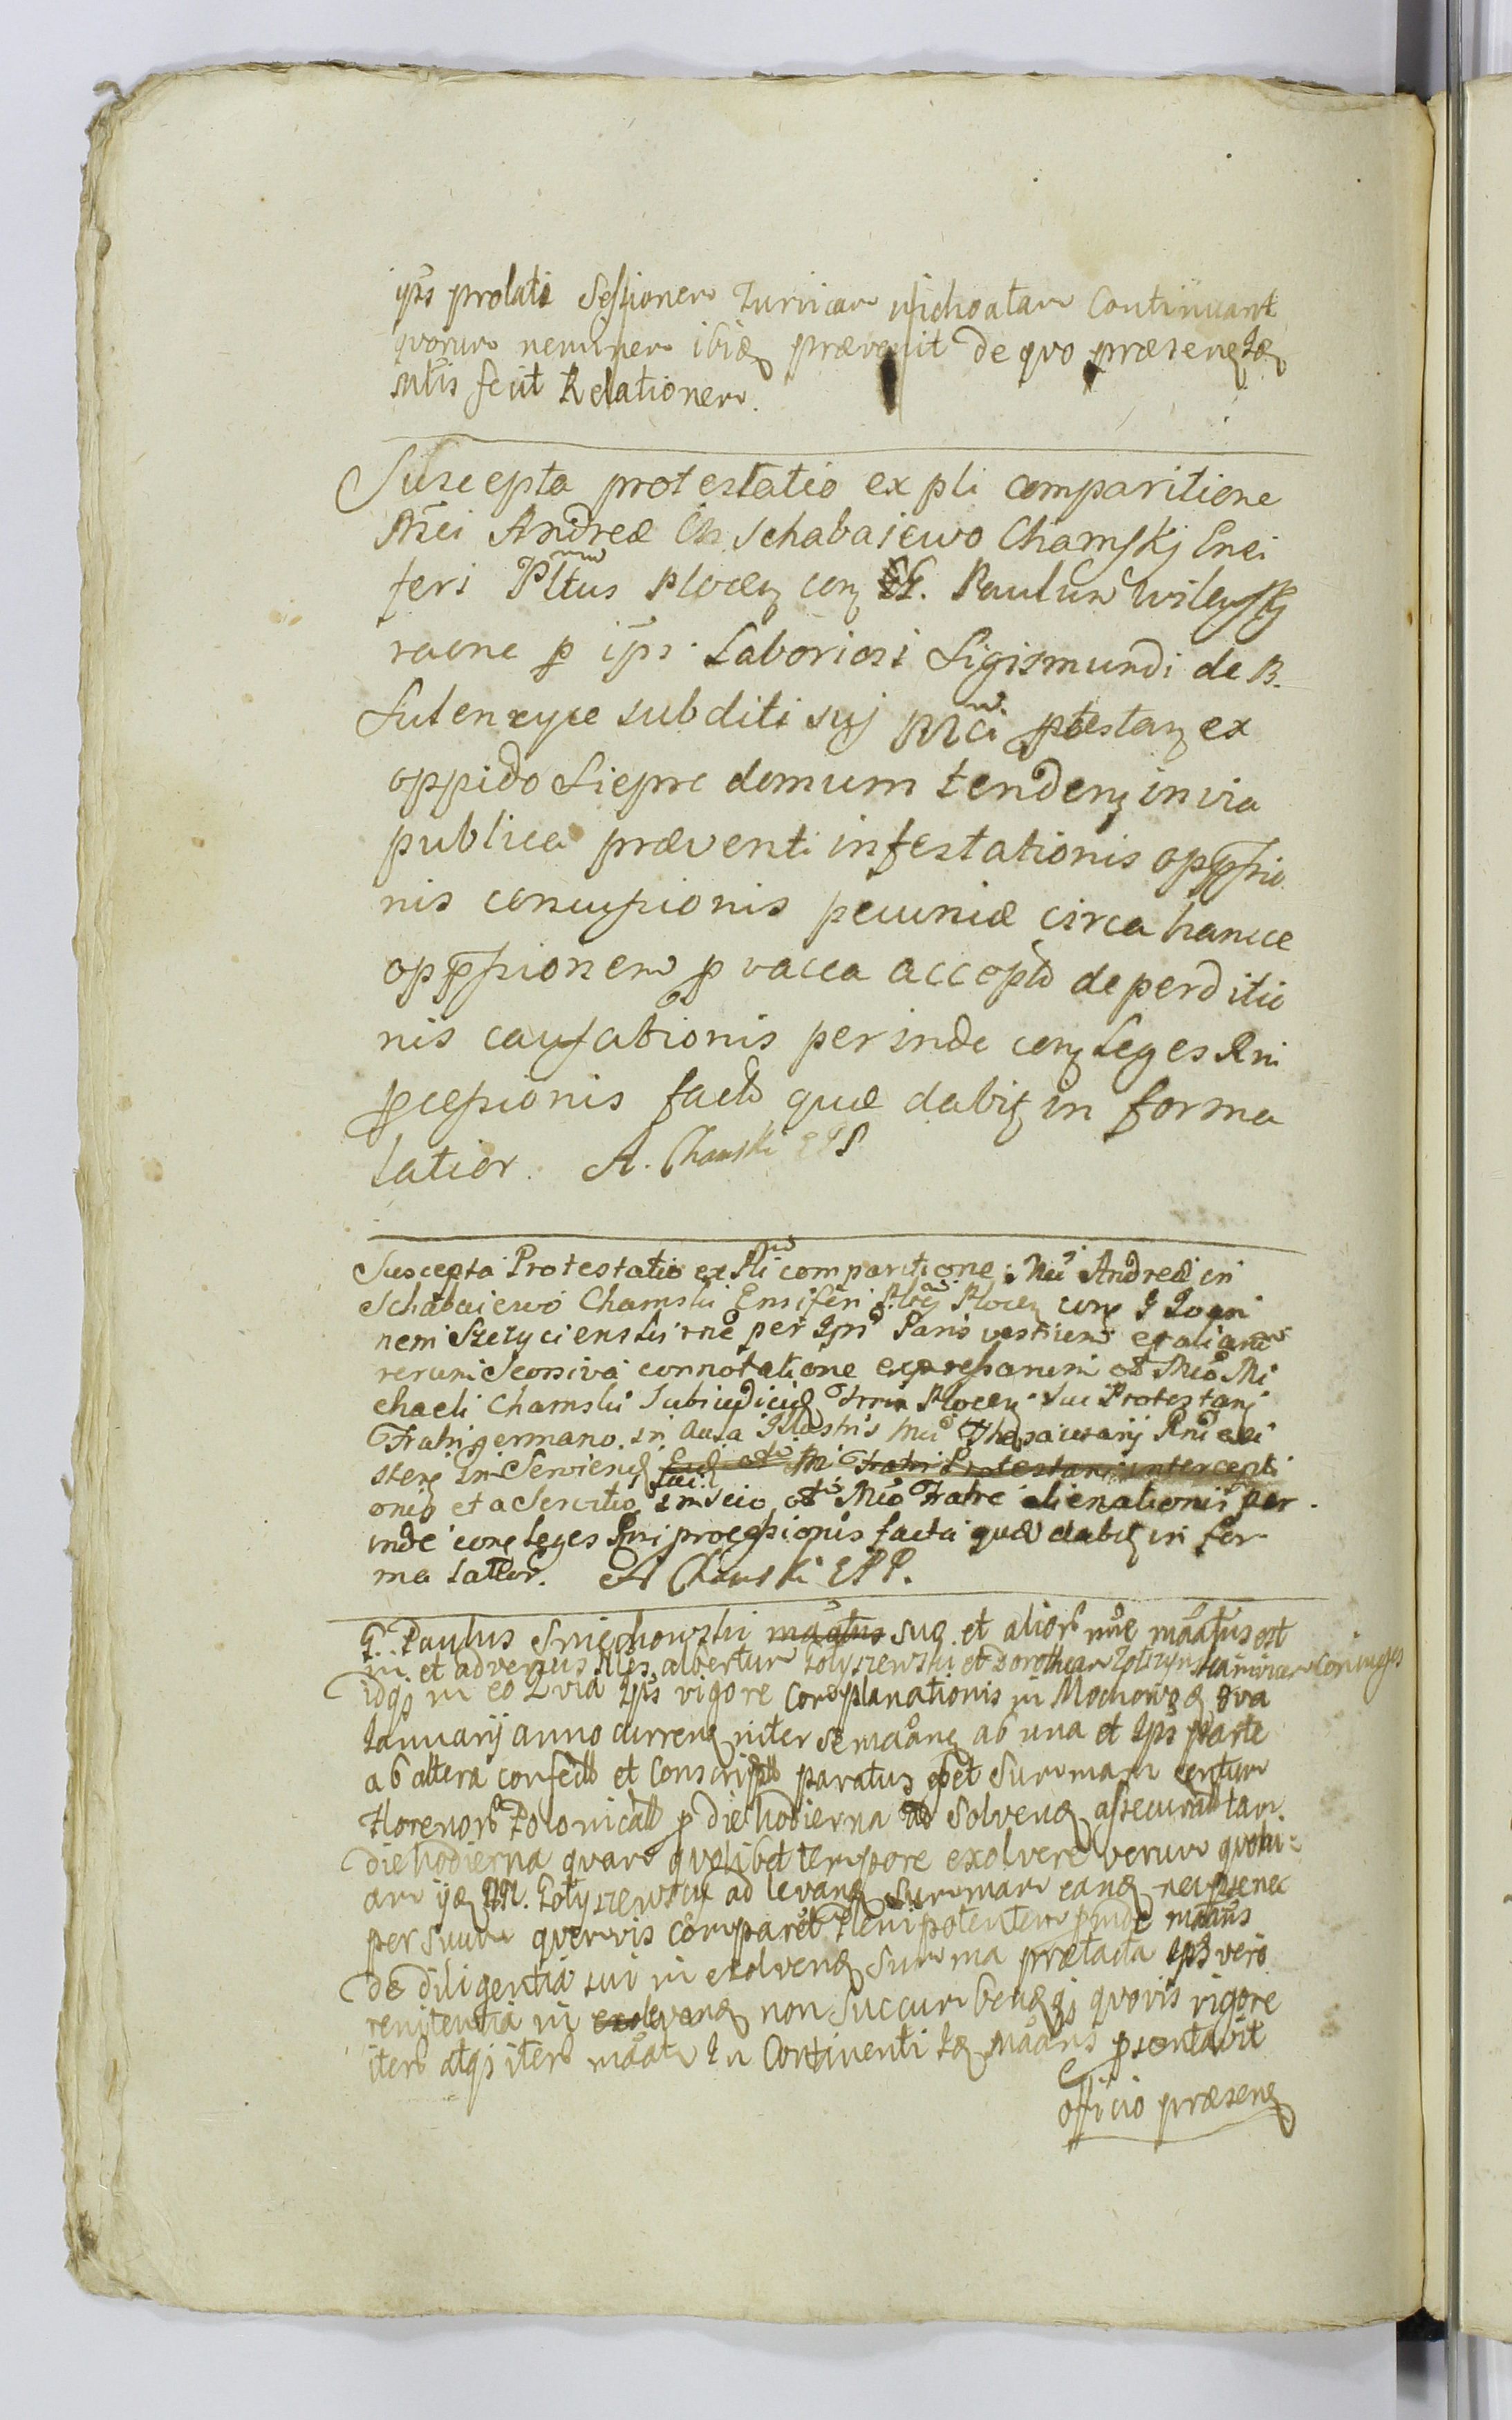 ips prolati Sessionem Iuridicam inchoatam Continuant
quorum neminem ibidz prævenit de quo præsenz Iudz
satis fecit Relationem.
Suscepta protestatio ex psli comparitione
Mei Andreæ in Schabaiewo Chamskj Ensi
feri Pltus Plocenz conz G. Paulum
raone p ips. Laboriosi Sigismundi de B.
Sulenczyce subditi suj Mci ptestanz ex
oppido Siepre domum tendenz in via
publica præventi infestationis opprssio
nis concussionis pecuniæ circa hancce
opprssionem p vacca acceptæ deperditio
nis causationis perinde conz Leges Rni
pcessionis facta quæ dabitz in forma
latior. A. Chamski EPP
Suscepta Protestatio ex Psli comparitione Mci Andreæ in
Schabaiewo Chamski Ensiferi Plocenz conz G Joan
nem rne per Ips Paris vestium et aliarum
rerum Seorsiva connotatione expressarum a Mco Mi
chaeli Chamski Subiudicidz Terræ Plocenz sui Protestanz
Fratri germano in Aula Illustris Mci Thesaurarij Rni exi
stenz in Servienz Fratri Protestanz intercepti
onis et a Servitio inscio Mco Fratre alienationis per
inde conz Leges Rni processionis facta quæ dabitz in for
ma latior. A Chamski EPP.
G. Paulus Smiechowski suo et aliorum nne maatus est
in et adversus Ndles Albertum Zolyszewski et Dorotheam coniuges
idqz in eo Quia Ips vigore Complanationis in Mochowz 8va
Ianuarij anno currenz inter se maanz ab una et Ips parte
ab altera confecta et Conscripta paratus esset Summam centum
Florenorum Polonicalium p die hodierna ad Solvendz assecuratam
die hodierna quavo quolibet tempore exolvere verum quoni-
am ijdz NN. Zolyszewscy ad levandz Summam eandz neqz
per Suum quemvis comparet Plenipotentem pinde maans
de diligentia sui in exolvendz Summa prætacta Ips vero
renitentia in levandz non Succumbendzqz quovis rigore
iterum atqz iterum maat In Continenti Idz maans psentavit
officio præsenz